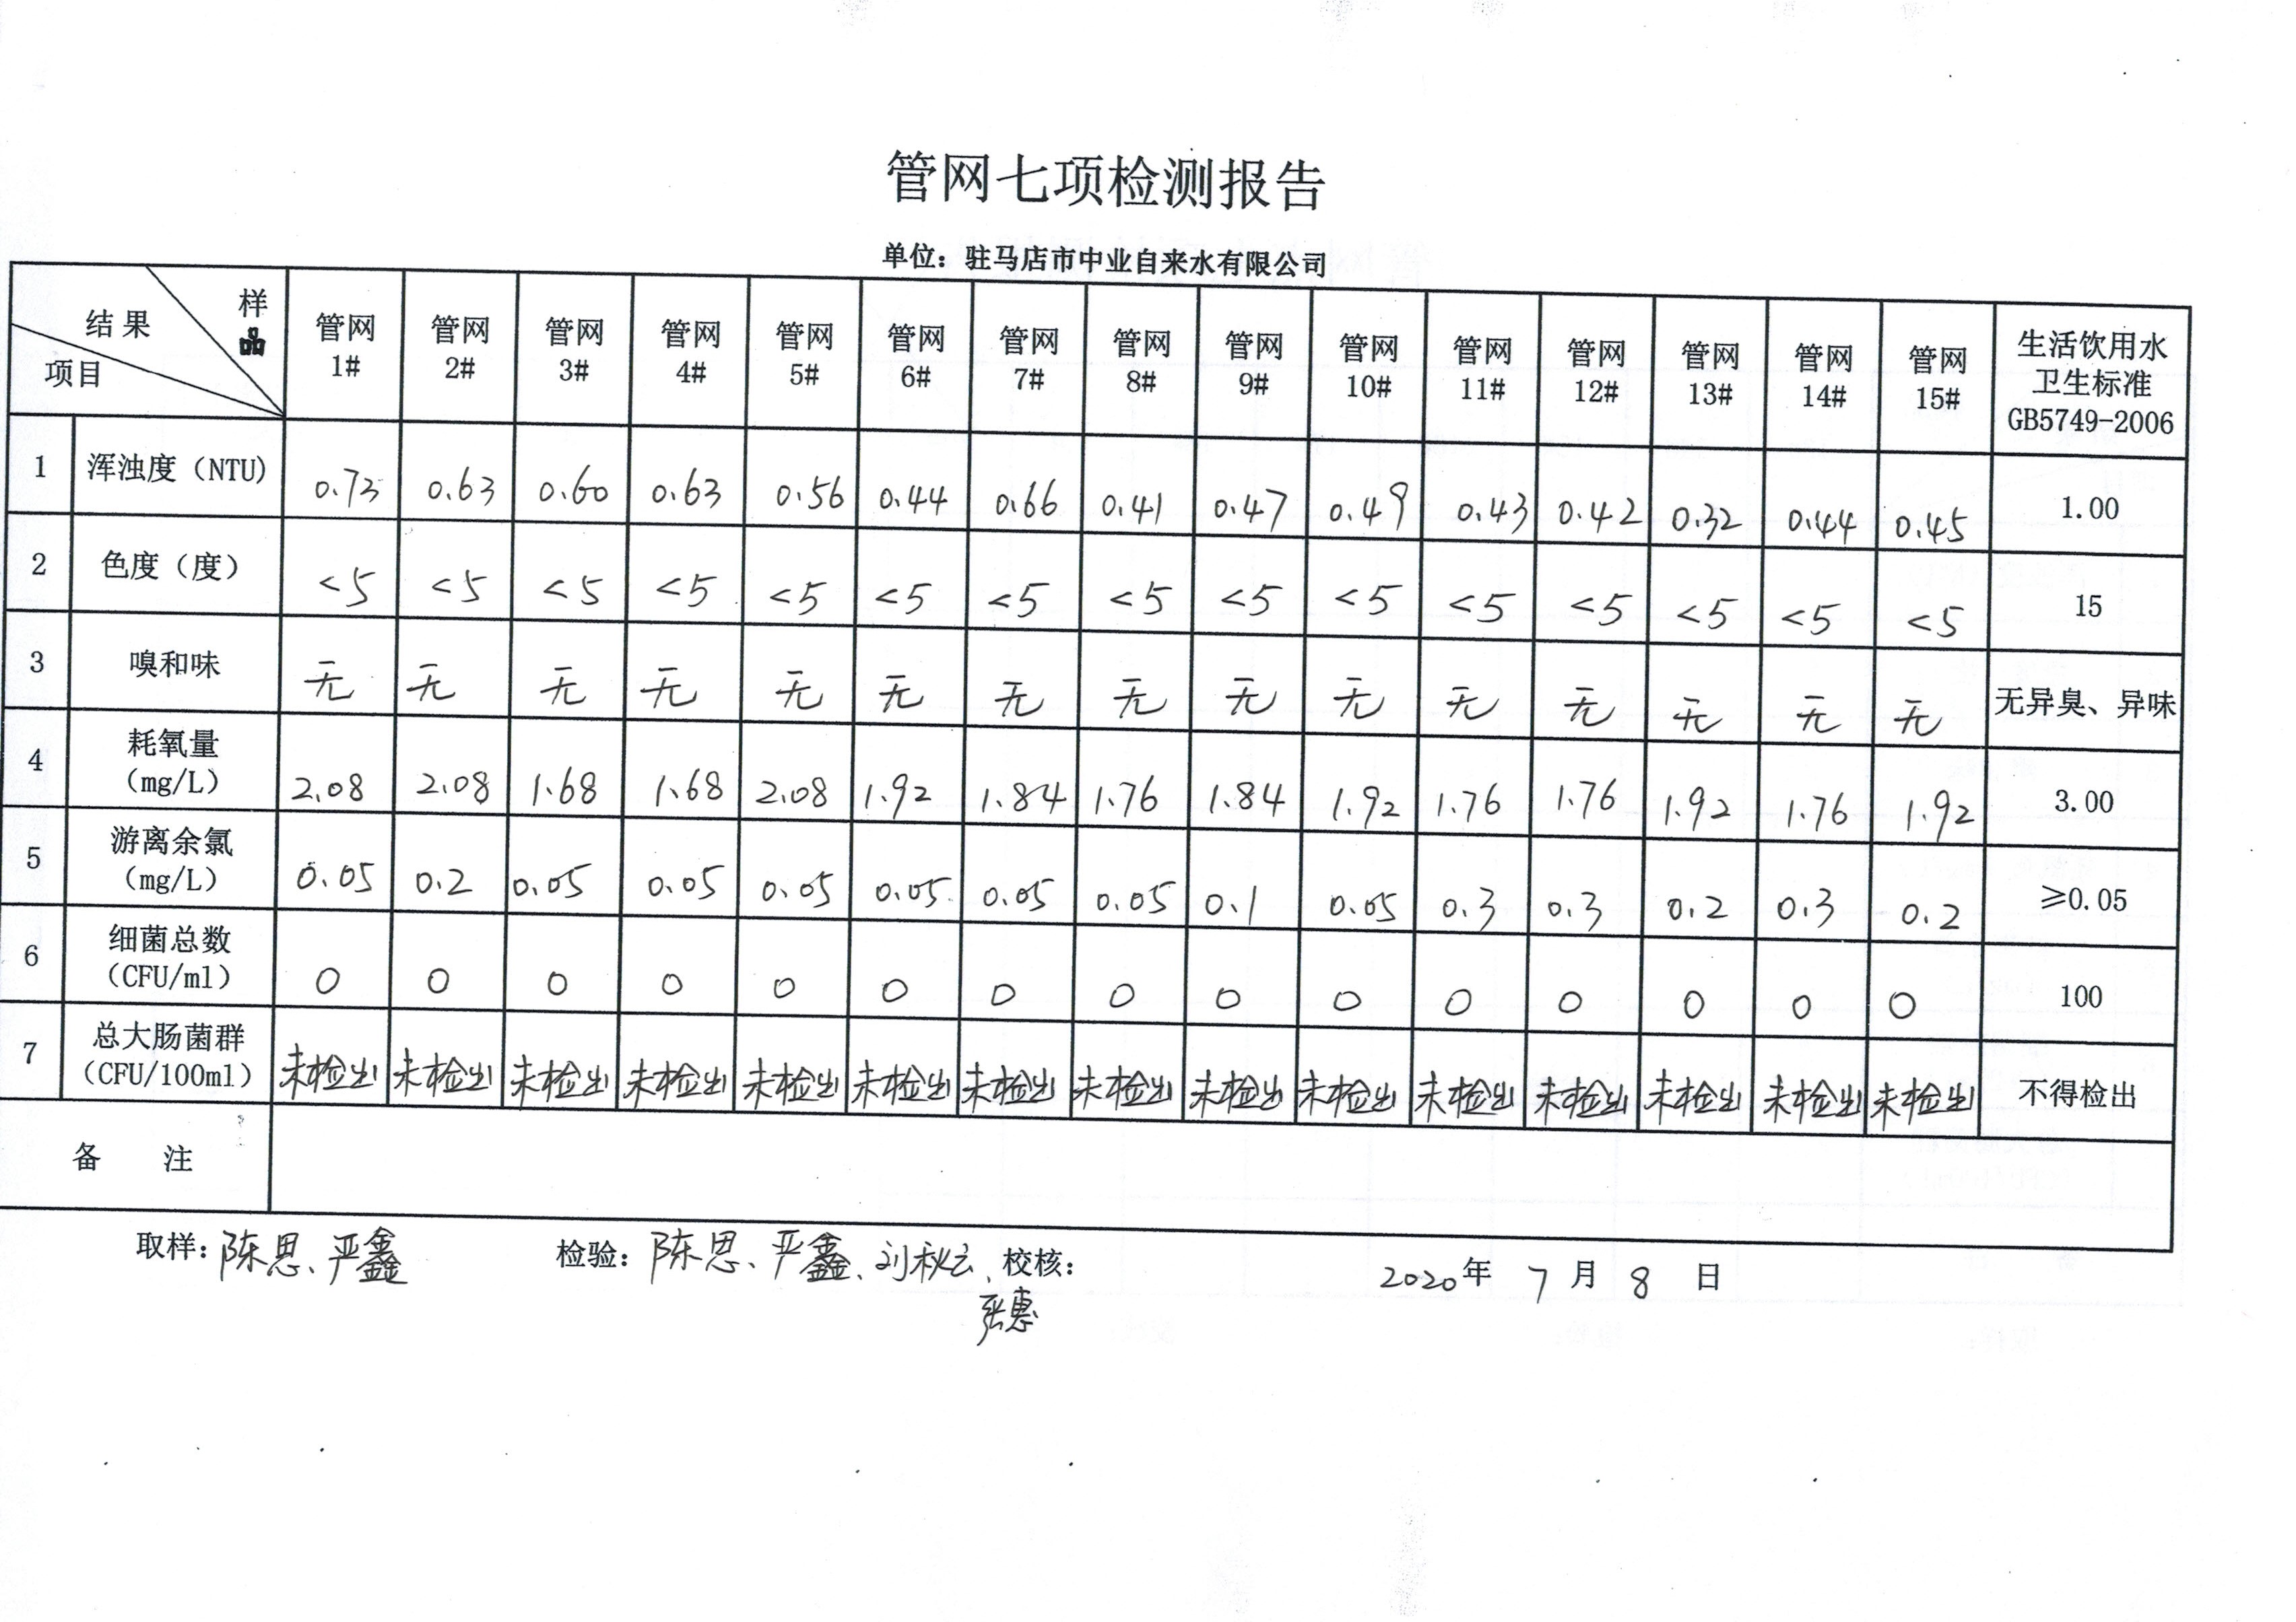 管网七项检测报告
单位：驻马店市中业自来水有限公司
结果 样品 项目 管网1# 管网2# 管网3# 管网4# 管网5# 管网6# 管网7# 管网8# 管网9# 管网10# 管网11# 管网12# 管网13# 管网14# 管网15# 生活饮用水卫生标准GB5749-2006
1 浑浊度（NTU) 0.73 0.63 0.60 0.63 0.56 0.44 0.66 0.41 0.47 0.49 0.43 0.42 0.32 0.44 0.45 1.00
2 色度（度） <5 <5 <5 <5 <5 <5 <5 <5 <5 <5 <5 <5 <5 <5 <5 15
3 嗅和味 无 无 无 无 无 无 无 无 无 无 无 无 无 无 无 无异臭、异味
4 耗氧量（mg/L） 2.08 2.08 1.68 1.68 2.08 1.92 1.84 1.76 1.84 1.92 1.76 1.76 1.92 1.76 1.92 3.00
5 游离余氯（mg/L） 0.05 0.2 0.05 0.05 0.05 0.05 0.05 0.05 0.1 0.05 0.3 0.3 0.2 0.3 0.2 ≥0.05
6 细菌总数（CFU/ml） 0 0 0 0 0 0 0 0 0 0 0 0 0 0 0 100
7 总大肠菌群（CFU/100ml） 未检出 未检出 未检出 未检出 未检出 未检出 未检出 未检出 未检出 未检出 未检出 未检出 未检出 未检出 未检出 不得检出
备 注
取样：陈思、严鑫 检验：陈思、严鑫、刘秋云、校核： 2020年 7 月 8 日
张惠